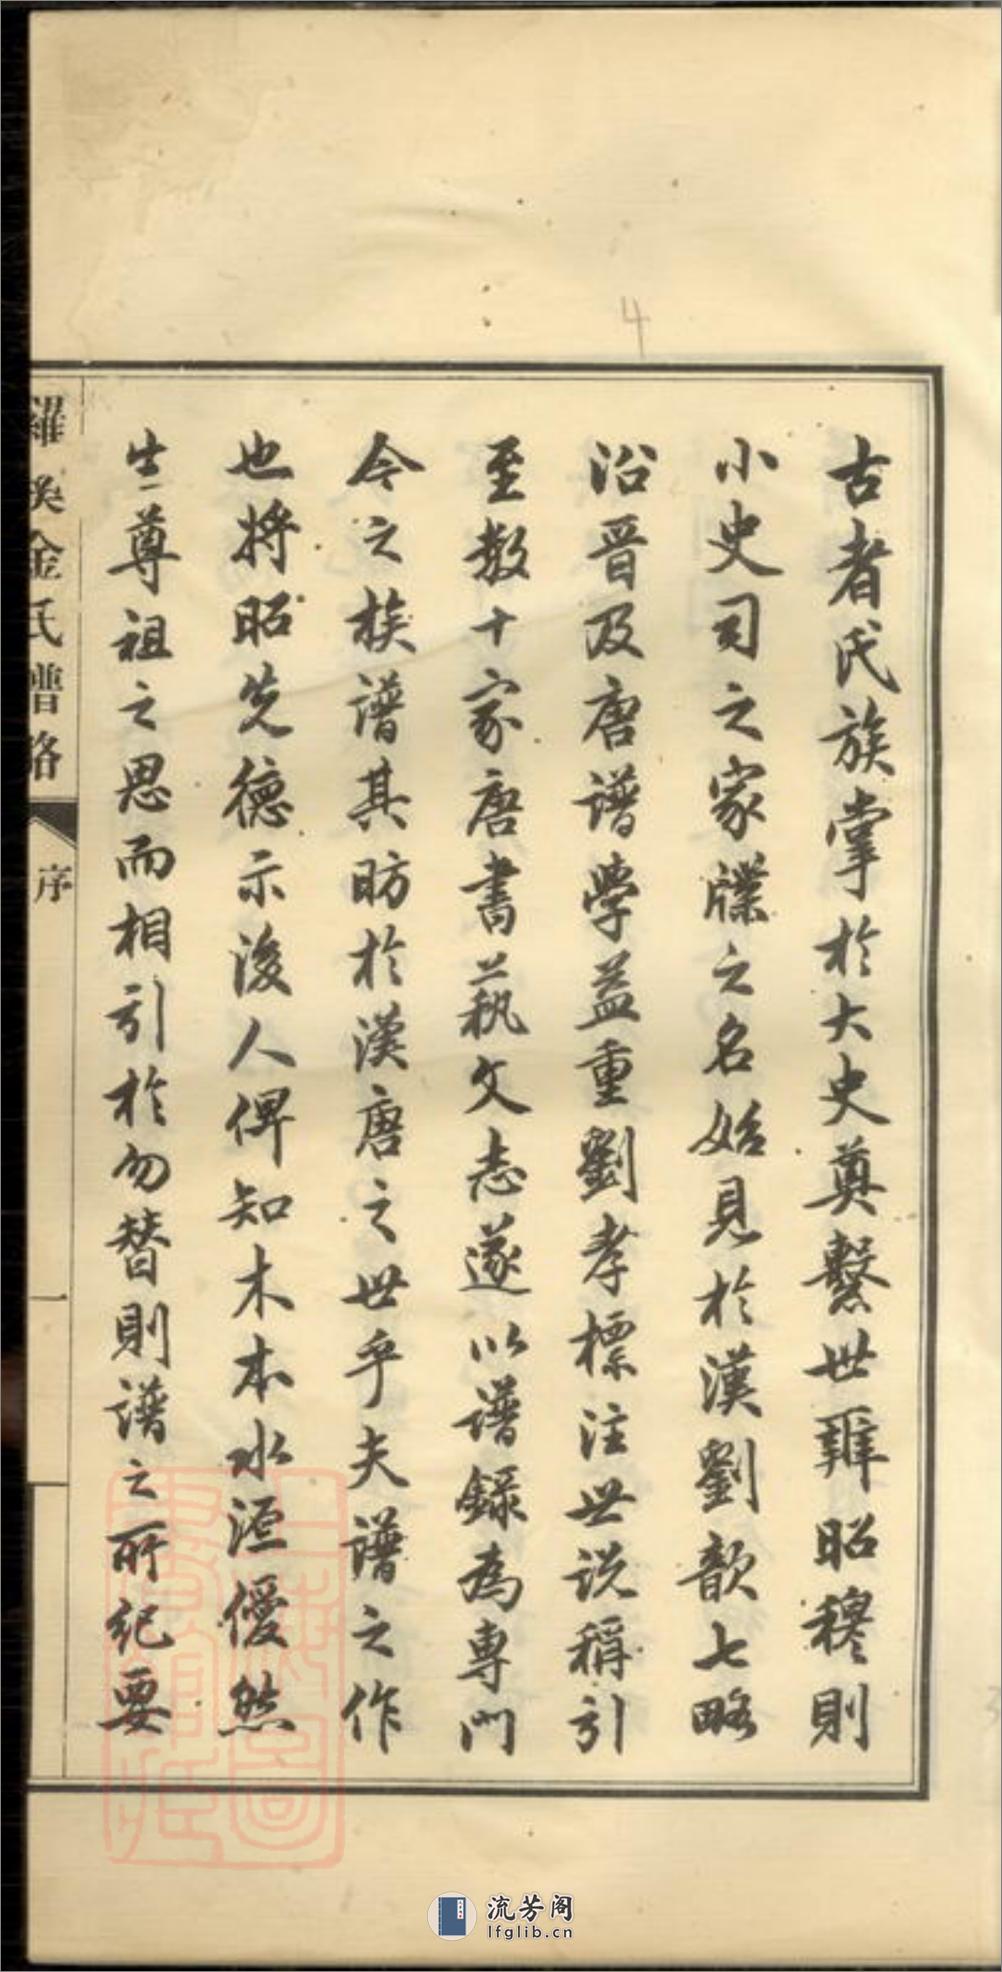 4
古者氏族掌於大史奠繫世辨昭穆則
小史司之家牒之名始見於漢劉歆七略
沿晉及唐譜學益重劉孝標注世说稱引
至數十家唐書蓺文志遂以譜錄為專門
今之族譜其昉於漢唐之世乎夫譜之作
也將昭先德示後人俾知木本水源優然
生尊祖之思而相引於勿替則譜之所紀要
羅溪金氏譜略
序
一
流芳阁
lfglib.cn